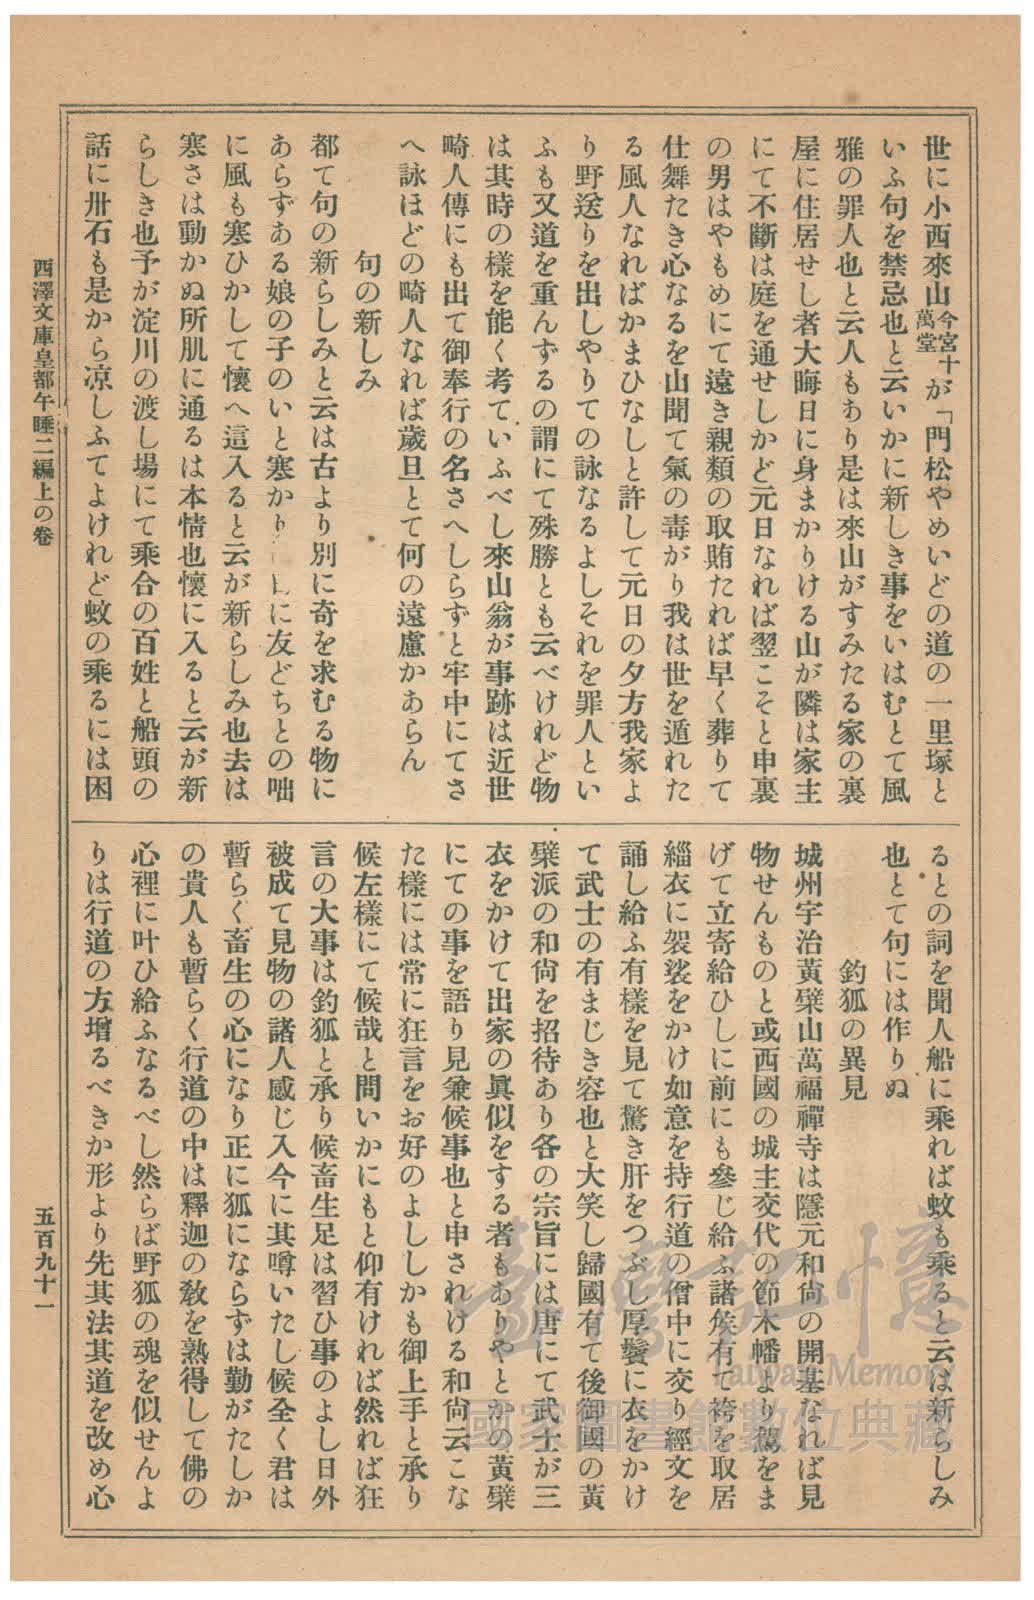 世に小西來山今宮十萬堂が「門松やめいどの道の一里塚と
いふ句を禁忌也と云いかに新しき事をいはむとて風
雅の罪人也と云人もあり是は來山がすみたる家の裏
屋に住居せし者大晦日に身まかりける山が隣は家主
にて不斷は庭を通せしかど元日なれば翌こそと申裏
の男はやもめにて遠き親類の取賄たれば早く葬りて
仕舞たき心なるを山聞て氣の毒がり我は世を遁れた
る風人なればかまひなしと許して元日の夕方我家よ
り野送りを出しやりての詠なるよしそれを罪人とい
ふも又道を重んずるの謂にて殊勝とも云べけれど物
は其時の樣を能く考ていふべし來山翁が事跡は近世
畸人傳にも出て御奉行の名さへしらずと牢中にてさ
へ詠ほどの畸人なれば歲旦とて何の遠慮かあらん
句の新しみ
都て句の新らしみと云は古より別に奇を求むる物に
あらずある娘の子のいと寒かり に友どちとの咄
に風も寒ひかして懷へ這入ると云が新らしみ也去は
寒さは動かぬ所肌に通るは本情也懷に入ると云が新
らしき也予が淀川の渡し場にて乘合の百姓と船頭の
話に卅石も是から凉しふてよけれど蚊の乘るには困
るとの詞を聞人船に乘れば蚊も乘ると云は新らしみ
也とて句には作りぬ
釣狐の異見
城州宇治黃檗山萬福禪寺は隱元和尙の開基なれば見
物せんものと或西國の城主交代の節木幡より駕をま
げて立寄給ひしに前にも參じ給ふ諸矦有て袴を取居
緇衣に袈裟をかけ如意を持行道の僧中に交り經文を
誦し給ふ有樣を見て驚き肝をつぶし厚鬢に衣をかけ
て武士の有まじき容也と大笑し歸國有て後御國の黃
檗派の和尙を招待あり各の宗旨には唐にて武士が三
衣をかけて出家の眞似をする者もありやとかの黃檗
にての事を語り見兼候事也と申されける和尙云こな
た樣には常に狂言をお好のよししかも御上手と承り
候左樣にて候哉と問いかにもと仰有ければ然れば狂
言の大事は釣狐と承り候畜生足は習ひ事のよし日外
被成て見物の諸人感じ入今に其噂いたし候全く君は
暫らく畜生の心になり正に狐にならずは勤がたしか
の貴人も暫らく行道の中は釋迦の敎を熟得して佛の
心裡に叶ひ給ふなるべし然らば野狐の魂を似せんよ
りは行道の方增るべきか形より先其法其道を改め心
西澤文庫皇都午睡二編上の卷
五百九十一
臺灣記憶
Taiwan Memory
國家圖書館數位典藏